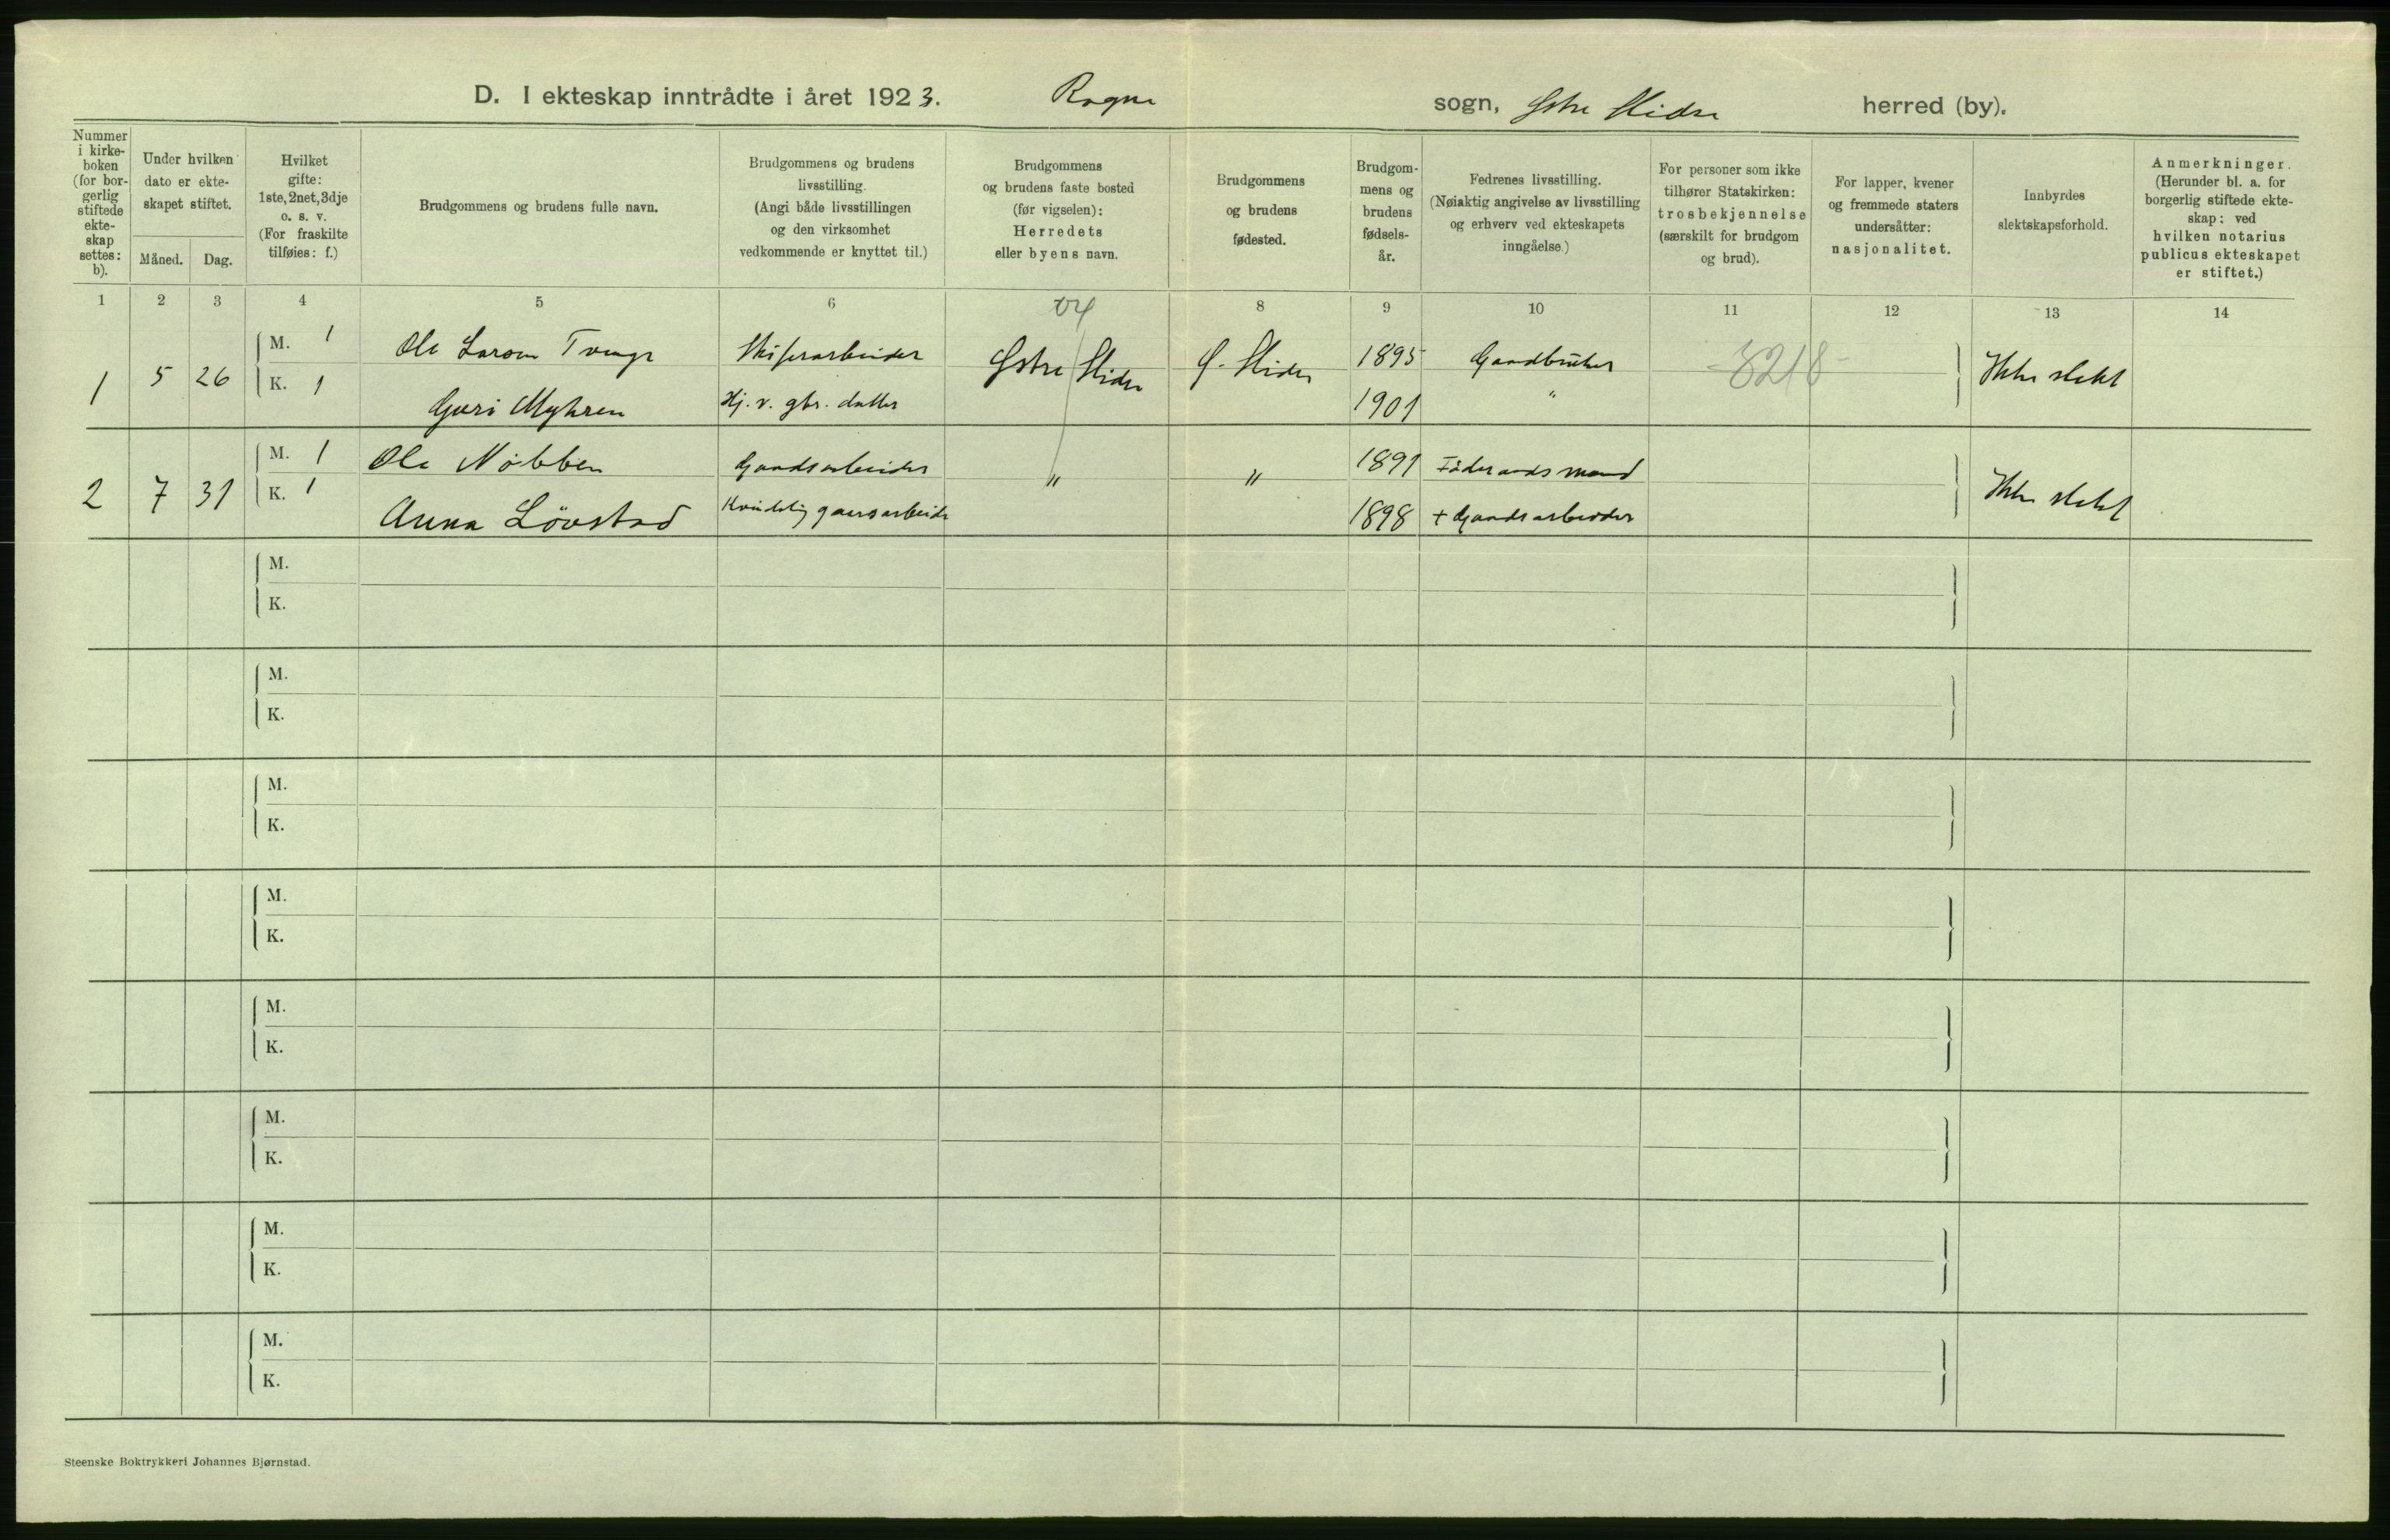 D. I ekteskap inntrådte i året 1923. Rogne sogn, Østre Slidre herred (by).
Nummer
i kirke-
boken
(for bor-
gerlig
stiftede
ekte-
skap
settes:
b).
Under hvilken
dato er ekte-
skapet stiftet.
Måned. Dag.
Hvilket
gifte:
1ste, 2net, 3dje
o. s. v.
(For fraskilte
tilføies: f.)
Brudgommens og brudens fulle navn.
Brudgommens og brudens
livsstilling.
(Angi både livsstillingen
og den virksomhet
vedkommende er knyttet til.)
Brudgommens
og brudens faste bosted
(før vigselen):
Herredets
eller byens navn.
Brudgommens
og brudens
fødested.
Brudgom-
mens og
brudens
fødsels-
år.
Fedrenes livsstilling.
(Nøiaktig angivelse av livsstilling
og erhverv ved ekteskapets
inngåelse.)
For personer som ikke
tilhører Statskirken:
trosbekjennelse
(særskilt for brudgom
og brud).
For lapper, kvener
og fremmede staters
undersåtter:
nasjonalitet.
Innbyrdes
slektskapsforhold.
Anmerkninger.
(Herunder bl. a. for
borgerlig stiftede ekte-
skap: ved
hvilken notarius
publicus ekteskapet
er stiftet.)
1 2 3 4 5 6 8 9 10 11 12 13 14
1 5 26 M. 1 Ole Larsen Skiferarbeider Østre Slidre Ø. Slidre 1895 Gaardbruker 3218 Ikke slekt
K. 1 Guri Myhren Hj. v. gbr. datter 1901 "
2 7 31 M. 1 Ole Nöbben Gaardsarbeider " " 1891 Föderaadsmand Ikke slekt
K. 1 Anna Lövstad Kvindelig gaardsarbeider 1898 + Gaardsarbeider
M.
K.
M.
K.
M.
K.
M.
K.
M.
K.
M.
K.
M.
K.
M.
K.
Steenske Boktrykkeri Johannes Bjørnstad.